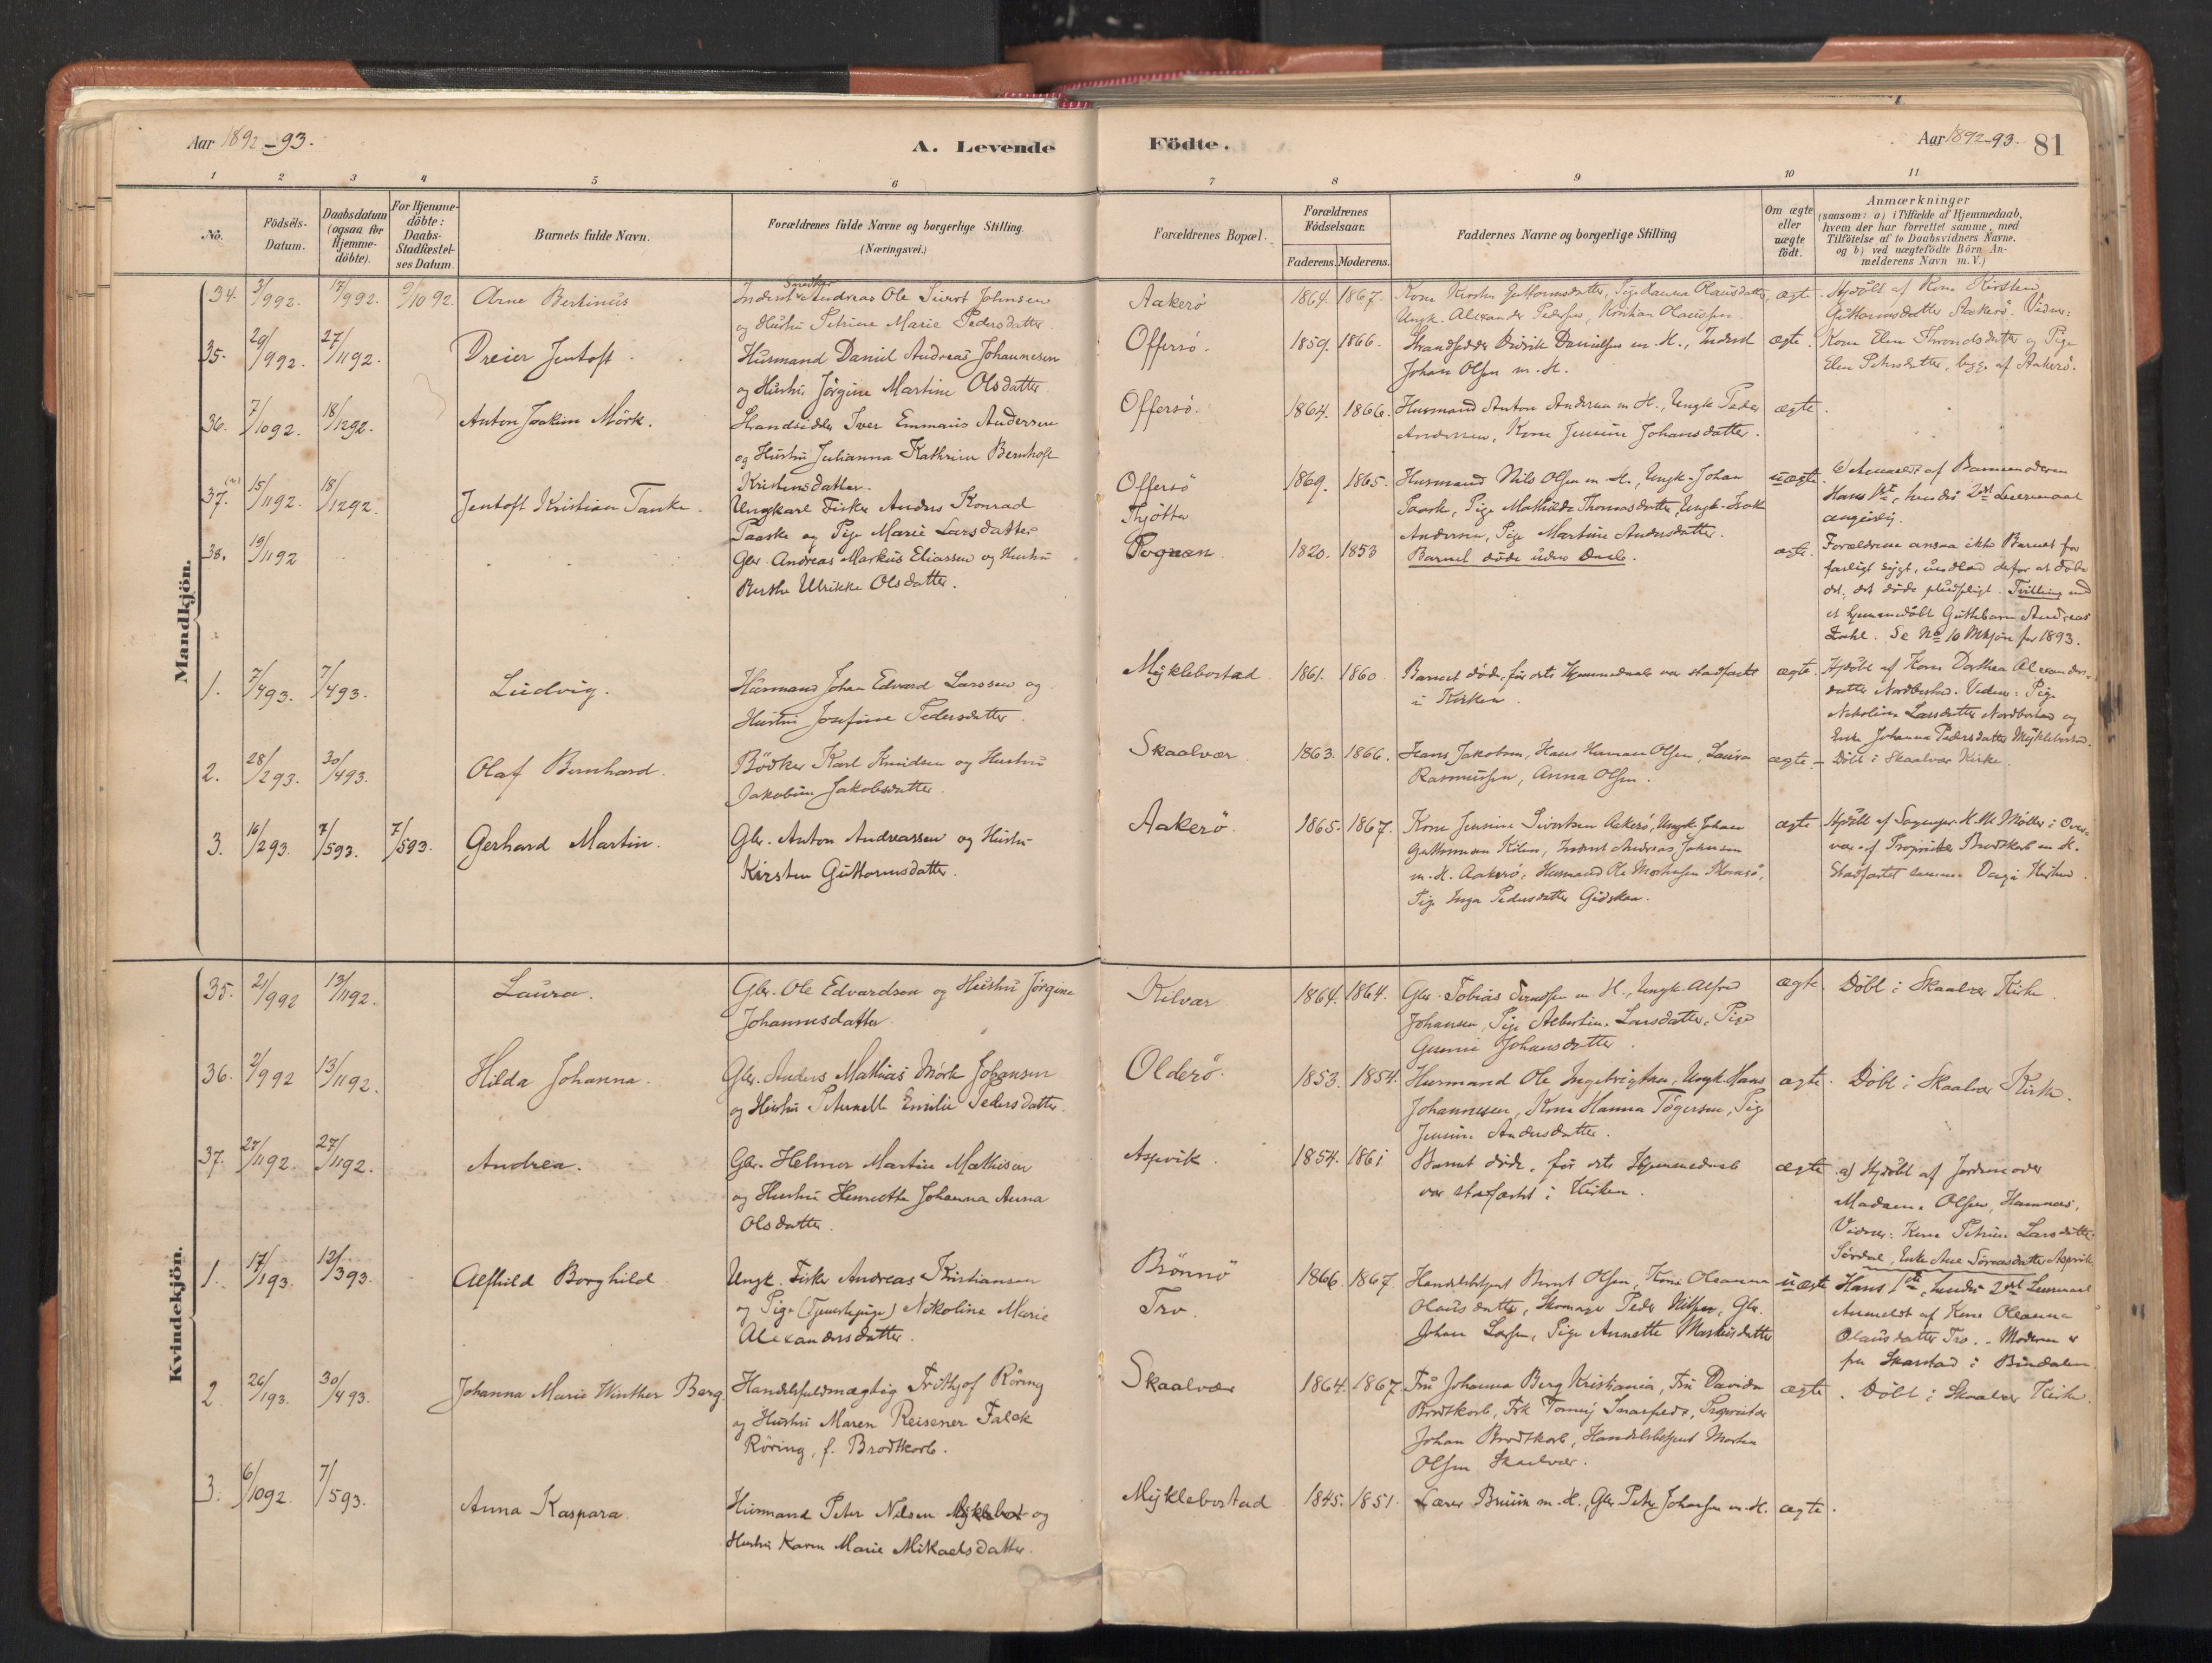 Aar 1892-93.
A. Levende
Födte.
Aar 1892-93.
81
1 2 3 4 5 6 7 8 9 10 11
No.
Födsels-
Datum.
Daabsdatum
(ogsaa for
Hjemme-
döbte).
For Hjemme-
döbte:
Daabs-
Stadfæstel-
ses Datum.
Barnets fulde Navn.
Forældrenes fulde Navne og borgerlige Stilling.
(Næringsvei.)
Forældrenes Bopæl.
Forældrenes
Födselsaar.
Faderens.
Moderens.
Faddernes Navne og borgerlige Stilling
Om ægte
eller
uægte
födt.
Anmærkninger
(saasom: a) i Tilfælde af Hjemmedaab,
hvem der har forrettet samme, med
Tilföielse af to Daabsvidners Navne.
og b) ved uægtefödte Börn An-
melderens Navn m.V.)
Mandkjön.
34. 3/992. 17/992. 9/1092. Arne Bertinus
Inderst Andreas Ole Sivert Johnsen
og Hustru Petrine Marie Pedersdatter.
Aakerö 1864. 1867.
Kone Kirsten Guttormsdatter, Pige Hanna Olausdatter,
Ungk. Alexander Pedersen, Kristian Olaussen.
ægte.
Hjdöbt af Kone Kirsten
Guttormsdatter Aakerö. Vidner:
Kone Elen Throndsdatter og Pige
Elen Petersdatter, begge af Aakerö.
35. 29/992. 27/1192. Dreier Jentoft
Husmand Daniel Andreas Johannesen
og Hustru Jörgine Martine Olsdatter.
Offersö. 1859. 1866.
Strandsidder Didrik Danielsen m. H., Inderst
Johan Olsen m. H.
ægte.
36. 7/1092. 18/1292. Anton Joakim Mörk.
Strandsidder Iver Emmaus Andersen
og Hustru Julianna Kathrine Bernhoft
Kristensdatter.
Offersö. 1864. 1866.
Husmand Anton Andersen m H., Ungk. Peder
Andersen, Kone Jensine Johansdatter.
ægte.
37. 15/1192. 18/1292. Jentoft Kristian Tanke.
Ungkarl Fisker Anders Konrad
Paaske og Pige Marie Larsdatter
Offersö
Thjötta
1869. 1865.
Husmand Nils Olsen m. H., Ungk. Johan
Paaske, Pige Mathilde Thomasdatter, Ungk. Isak
Andersen, Pige Martine Andersdatter.
uægte.
af Barnemoderen
Hans 1ste, hendes 2det Leiermaal
angivelig.
38. 19/1192
Gbr. Andreas Markus Eliassen og Hustru
Berthe Ulrikke Olsdatter.
1820. 1853
Barnet döde uden Daab.
ægte.
Forældrene ansaa ikke Barnet for
farligt sygt, undlod derfor at döbe
det, det döde pludseligt. Tvilling med
et hjemmedöbt Guttebarn Andreas
Se No 10 Mkjön for 1893.
1. 7/493. 7/493. Ludvig.
Husmand Johan Edvard Larssen og
Hustru Josefine Pedersdatter.
Myklebostad 1861. 1860
Barnet döde, för dets Hjemmedaab var stadfæstet
i Kirken.
ægte.
Hjdöbt af Kone Dorthea Alexanders-
datter Nordbostad. Vidner: Pige
Nikoline Larsdatter Nordbostad og
Enke Johanna Pedersdatter Myklebostad.
2. 28/293. 30/493. Olaf Bernhard.
Bödker Karl Knudsen og Hustru
Jakobine Jakobsdatter.
Skaalvær 1863. 1866.
Hans Jakobsen, Hans Herman Olsen, Laura
Rasmussen, Anna Olsen.
ægte.
Döbt i Skaalvær Kirke.
3. 16/293. 7/593. 7/593. Gerhard Martin.
Gbr. Anton Andreassen og Hustru
Kirsten Guttormsdatter.
Aakerö. 1865. 1867.
Kone Jensine Sivertsen Aakerö, Ungk. Johan
Guttormsen Kilen, Inderst Andreas Johnsen
m. H. Aakerö, Husmand Ole
Pige Inga Pedersdatter Gidskaa.
ægte
Hjdöbt af Sogneprest Möller i Over-
vær af Proprietær Brodtkorb m H.
Stadfæstet samme Dag i Kirken.
Kvindekjön.
35. 21/992 13/1192. Laura.
Gbr. Ole Edvardsen og Hustru Jörgine
Johannesdatter.
Kilvær 1864. 1864.
Gbr. Tobias m. H., Ungk. Alfred
Johansen, Pige Albertine Larsdatter, Pige
Johansdatter.
ægte
Döbt i Skaalvær Kirke.
36. 2/992 13/1192. Hilda Johanna.
Gbr. Anders Mathias Mörk Johansen
og Hustru Petrnelle Emilie Pedersdatter.
Olderö. 1853. 1854.
Husmand Ole Ingebrigtsen, Ungk. Hans
Johannesen, Kone Hanna Tögersen, Pige
Jensine Andersdatter.
ægte.
Döbt i Skaalvær Kirke.
37. 27/1192. 27/1192. Andrea.
Gbr. Helmer Martin Mathisen
og Hustru Henriette Johanna Anna
Olsdatter.
Aspvik. 1854. 1861
Barnet döde, för dets Hjemmedaab
var stadfæstet i Kirken.
ægte.
a) Hjdöbt af Jordemoder
Madam Olsen, Hamnes.
Vidner: Kone Petrine Larsdatter
Enke Ane Aspvik
1. 17/193. 12/393. Alfhild Borghild
Ungk. Fisker Andreas Kristiansen
og Pige (Tjenestepige) Nikoline Marie
Alexandersdatter.
Brönnö
Tro.
1866. 1867.
Handelsbetjent Bernt Olsen, Kone Oleanna
Olausdatter, Skomager Peder Nilsen, Gbr.
Johan Larsen, Pige Annette Markusdatter
uægte
Hans 1ste, hendes 2det Leiermaal
Anmeldt af Kone Oleanna
Olausdatter Tro. - Moderen er
fra Skarstad i Bindalen.
2. 26/193. 30/493. Johanna Marie Winther Berg.
Handelsfuldmægtig Frithjof Röring
og Hustru Maren Reisener Falck
Röring, f. Brodtkorb.
Skaalvær 1864. 1867
Fru Johanna Berg Kristiania, Fru Davida
Brodtkorb, Frk Tommy, Proprietær
Johan Brodtkorb, Handelsbetjent Morten
Olsen Skaalvær.
ægte.
Döbt i Skaalvær Kirke.
3. 6/1092. 7/593. Anna Kaspara.
Husmand Peter Nilsen og
Hustru Karen Marie Mikaelsdatter.
Myklebostad 1845. 1851.
Lærer Bruun m. H., Gbr. Peter Johansen m. H.
ægte.